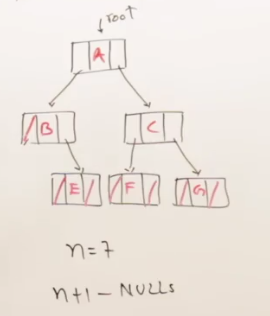 root
A
B C
E F G
n=7
n+1 - NULLS